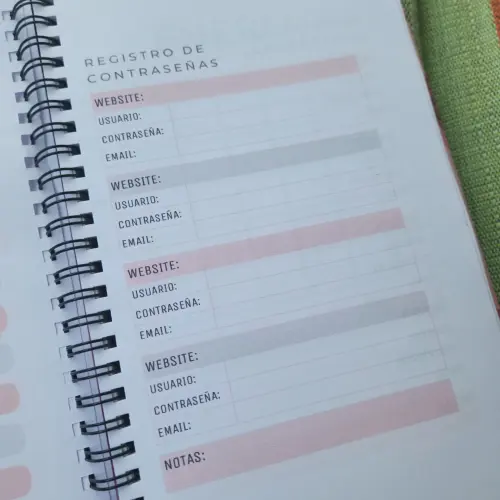 REGISTRO DE
CONTRASEÑAS
WEBSITE:
USUARIO:
CONTRASEÑA:
EMAIL:
WEBSITE:
USUARIO:
CONTRASEÑA:
EMAIL:
WEBSITE:
USUARIO:
CONTRASEÑA:
EMAIL:
WEBSITE:
USUARIO:
CONTRASEÑA:
EMAIL:
NOTAS: